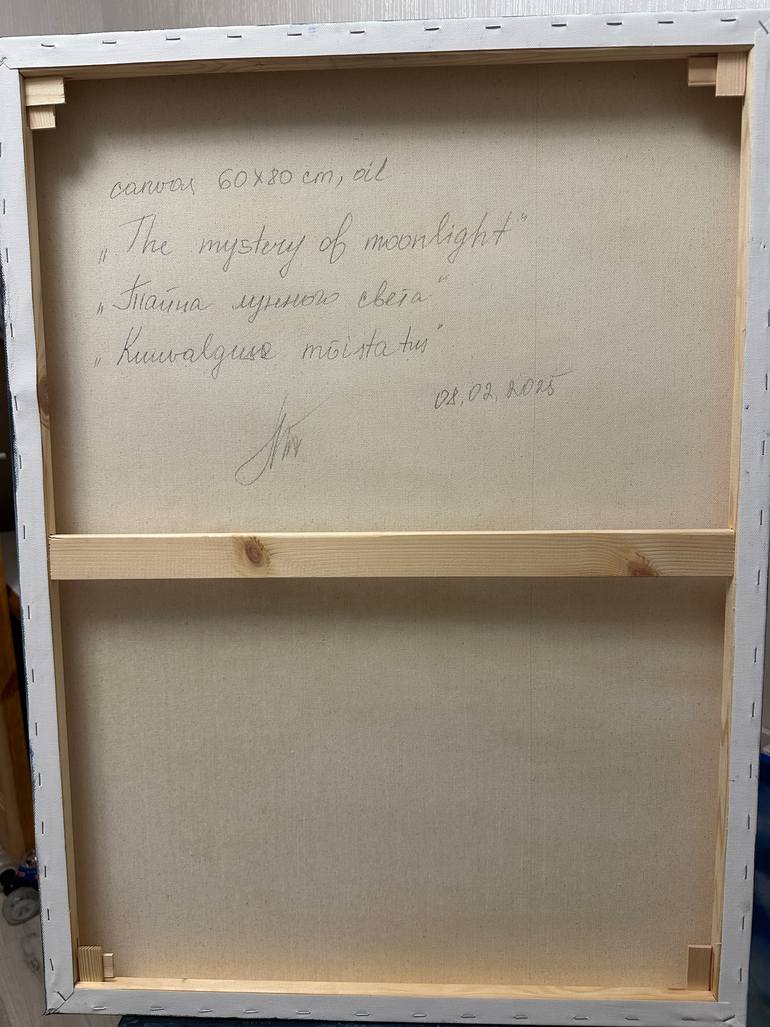 canvas 60x80 cm, oil
„The mystery of moonlight“
„Тайна лунного света“
„Kuuvalguse mõistatus“
08.02.2025